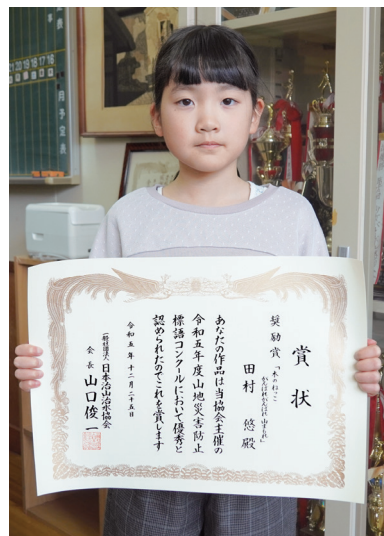 賞状
奨励賞 「木のねっこ
がんばれがんばれ 山まもれ」
田村 悠 殿
あなたの作品は当協会主催の
令和五年度山地災害防止
標語コンクールにおいて優秀と
認められたのでこれを賞します
令和五年十二月二十五日
一般社団法人 日本治山治水協会
会長 山口俊一
月予定表